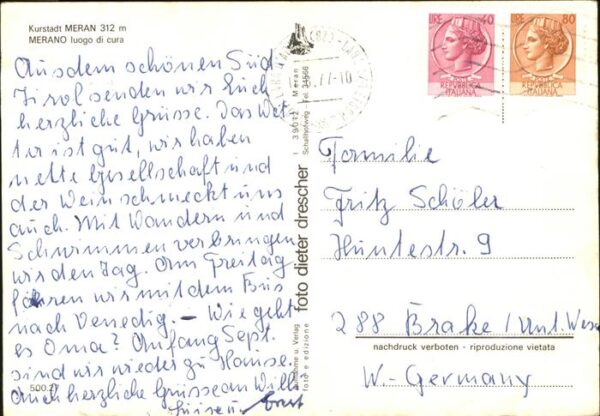 Kurstadt MERAN 312 m
MERANO luogo di cura
Aus dem schönen Süd-
Tirol senden wir Euch
herzliche Grüsse. Das Wet-
ter ist gut, wir haben
nette Gesellschaft und
der Wein schmeckt uns
auch. Mit Wandern und
Schwimmen verbringen
wir den Tag. Am Freitag
fahren wir mit dem Bus
nach Venedig. - Wie geht
es Oma? Anfang Sept.
sind wir wieder zu Hause.
Auch herzliche Grüsse an Willi
Ernst
500.27
foto dieter drescher
Meran
Schallhofweg
Tel. 24566
I 39012
aufnahme u. Verlag
foto e edizione
77-10
LIRE 40
REPVBBLICA
ITALIANA
LIRE 80
REPVBBLICA
ITALIANA
Familie
Fritz Schöler
Huntestr. 9
288 Brake/Unt. Wes
nachdruck verboten - riproduzione vietata
W.-Germany